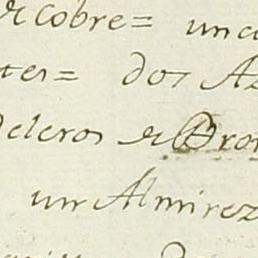 de cobre= una
tes= dos A
deleros de Bron
un Almirez